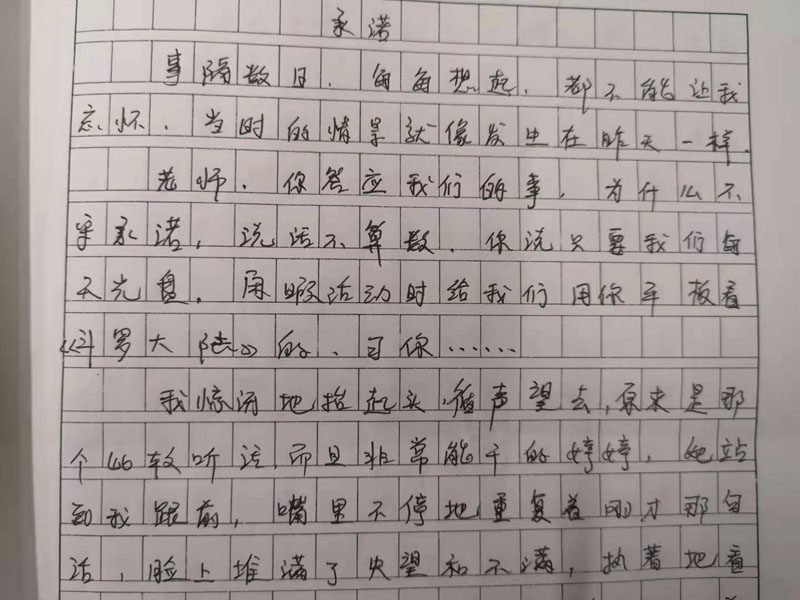 承诺
事隔数日，每每想起，都不能让我
忘怀，当时的情景就像发生在昨天一样.
老师，你答应我们的事，为什么不
守承诺，说话不算数，你说只要我们每
天光盘，闲暇活动时给我们用你平板看
《斗罗大陆》的，可你……
我惊讶地抬起头，循声望去，原来是那
个比较听话，而且非常能干的婷婷，她站
到我跟前，嘴里不停地重复着刚才那句
话，脸上堆满了失望和不满，执着地看